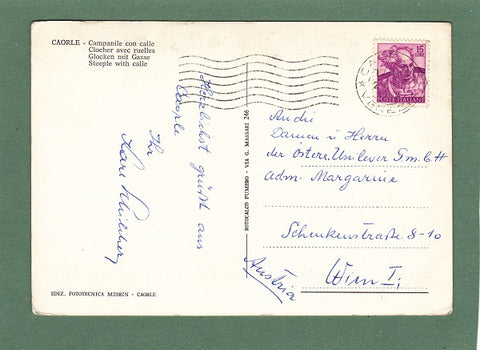 CAORLE - Campanile con calle
Clocher avec ruelles
Glocken mit Gasse
Steeple with calle
Herzlichst grüßt aus
Caorle
Ihr
Karl
EDIZ. FOTOTECNICA MEDRIN - CAORLE
ROTOCALCO FUMERO - VIA G. MASSARI 246
15
POSTE ITALIANE
An die
Damen u Herrn
der Österr. Unilever G.m.b.H
adm. Margarine
Schenkenstraße 8-10
Wien I.
Austria